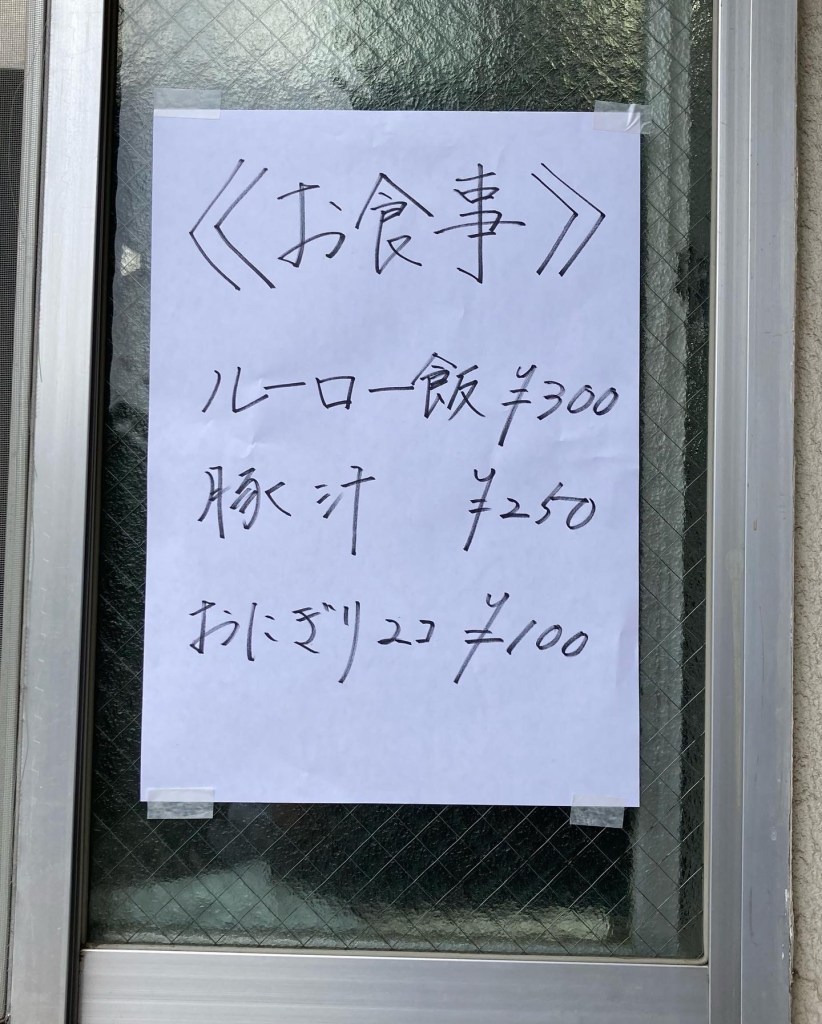 《お食事》
ルーロー飯 ¥300
豚汁 ¥250
おにぎり2コ ¥100